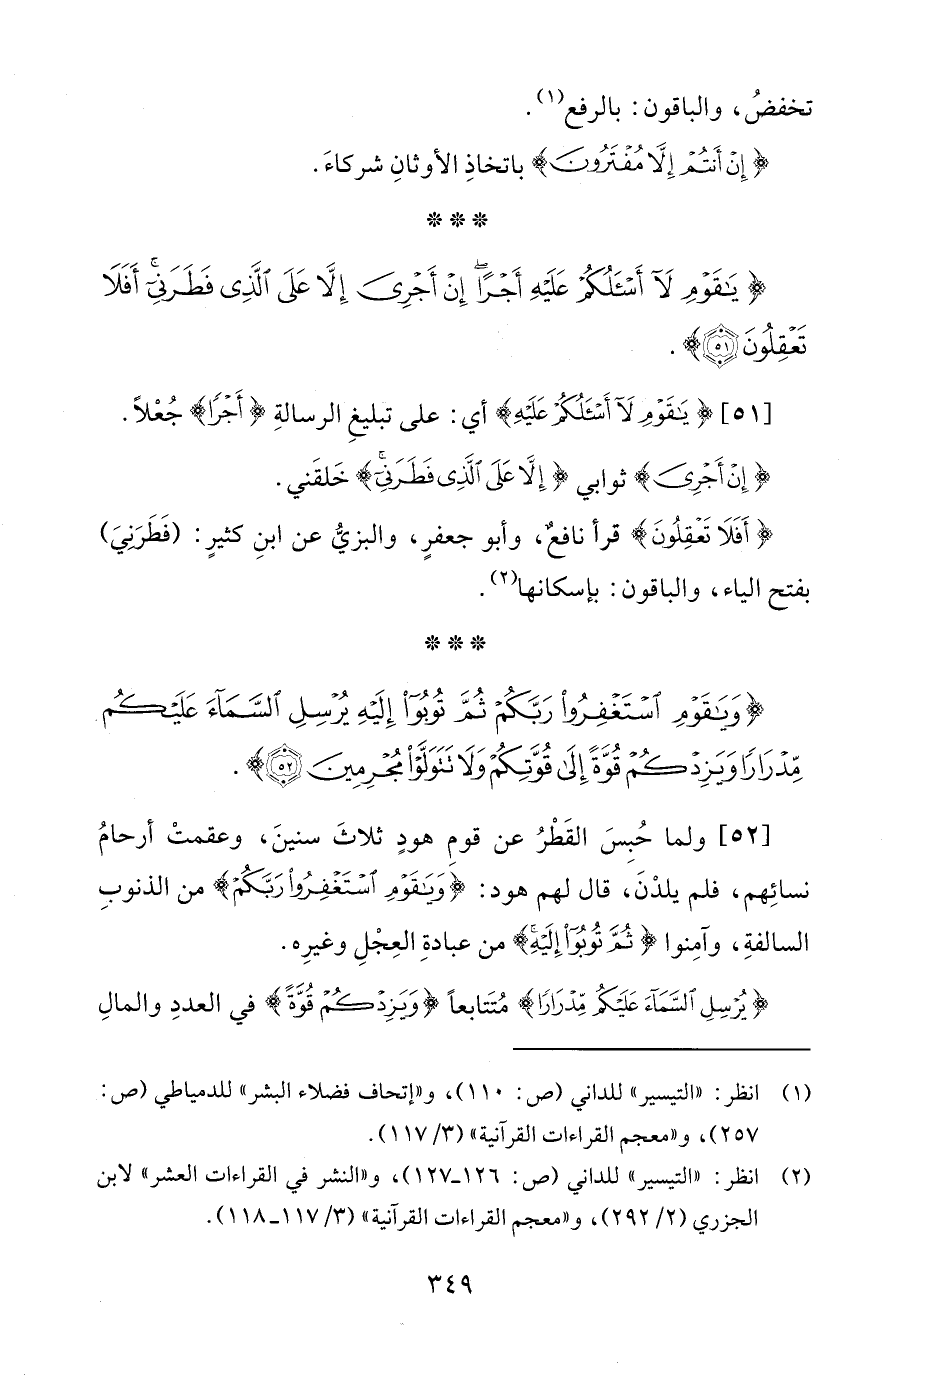 تخفضُ، والباقون: بالرفع(١).
﴿إِنْ أَنتُمْ إِلَّا مُفْتَرُونَ﴾ باتخاذِ الأوثانِ شركاءَ.
***
﴿يَٰقَوْمِ لَآ أَسْـَٔلُكُمْ عَلَيْهِ أَجْرًا ۖ إِنْ أَجْرِىَ إِلَّا عَلَى ٱلَّذِى فَطَرَنِىٓ ۚ أَفَلَا
تَعْقِلُونَ ٥١﴾.
[٥١] ﴿يَٰقَوْمِ لَآ أَسْـَٔلُكُمْ عَلَيْهِ﴾ أي: على تبليغِ الرسالةِ ﴿أَجْرًا﴾ جُعْلاً.
﴿إِنْ أَجْرِىَ﴾ ثوابي ﴿إِلَّا عَلَى ٱلَّذِى فَطَرَنِىٓ ۚ﴾ خَلقَني.
﴿أَفَلَا تَعْقِلُونَ﴾ قرأ نافعٌ، وأبو جعفرٍ، والبزيُّ عن ابنِ كثيرٍ: (فَطَرَنِيَ)
بفتح الياء، والباقون: بإسكانها(٢).
***
﴿وَيَٰقَوْمِ ٱسْتَغْفِرُوا۟ رَبَّكُمْ ثُمَّ تُوبُوٓا۟ إِلَيْهِ يُرْسِلِ ٱلسَّمَآءَ عَلَيْكُم
مِّدْرَارًا وَيَزِدْكُمْ قُوَّةً إِلَىٰ قُوَّتِكُمْ وَلَا تَتَوَلَّوْا۟ مُجْرِمِينَ ٥٢﴾.
[٥٢] ولما حُبِسَ القَطْرُ عن قومِ هودٍ ثلاثَ سنينَ، وعقمتْ أرحامُ
نسائِهم، فلم يلدْنَ، قال لهم هود: ﴿وَيَٰقَوْمِ ٱسْتَغْفِرُوا۟ رَبَّكُمْ﴾ من الذنوبِ
السالفةِ، وآمِنوا ﴿ثُمَّ تُوبُوٓا۟ إِلَيْهِ ۚ﴾ من عبادةِ العِجْلِ وغيرِه.
﴿يُرْسِلِ ٱلسَّمَآءَ عَلَيْكُم مِّدْرَارًا﴾ مُتَتابعاً ﴿وَيَزِدْكُمْ قُوَّةً﴾ في العددِ والمالِ
(١) انظر: «التيسير» للداني (ص: ١١٠)، و«إتحاف فضلاء البشر» للدمياطي (ص:
٢٥٧)، و«معجم القراءات القرآنية» (٣/ ١١٧).
(٢) انظر: «التيسير» للداني (ص: ١٢٦ـ١٢٧)، و«النشر في القراءات العشر» لابن
الجزري (٢/ ٢٩٢)، و«معجم القراءات القرآنية» (٣/ ١١٧ـ١١٨).
٣٤٩